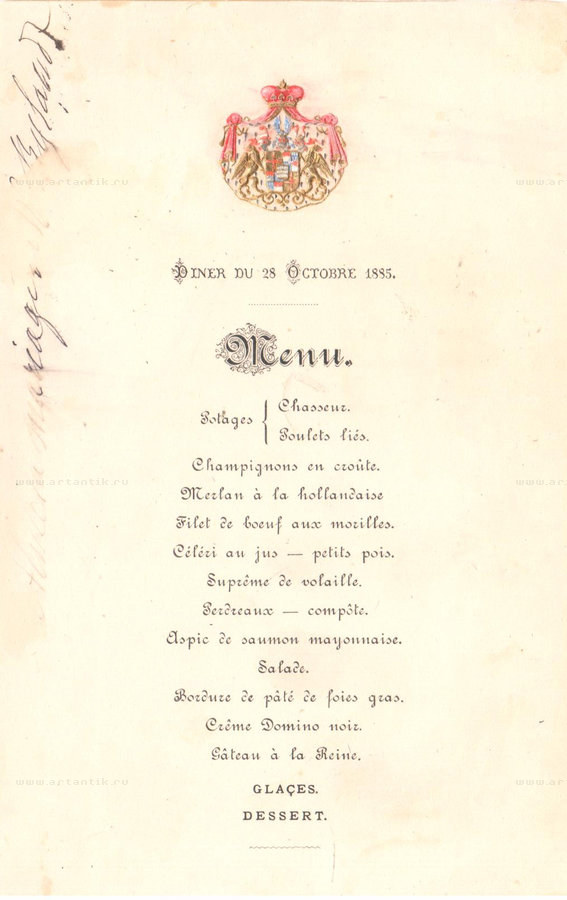 www.artantik.ru www.artantik.ru www.artantik.ru
DINER DU 28 OCTOBRE 1885.
Menu.
Potages { Chasseur.
Poulets liés.
Champignons en croûte.
www.artantik.ru www.artantik.ru www.artantik.ru
Merlan à la hollandaise
Filet de boeuf aux morilles.
Céléri au jus — petits pois.
Suprême de volaille.
Perdreaux — compôte.
Aspic de saumon mayonnaise.
Salade.
Bordure de pâté de foies gras.
Crême Domino noir.
Gâteau à la Reine.
www.artantik.ru www.artantik.ru www.artantik.ru
GLAÇES.
DESSERT.